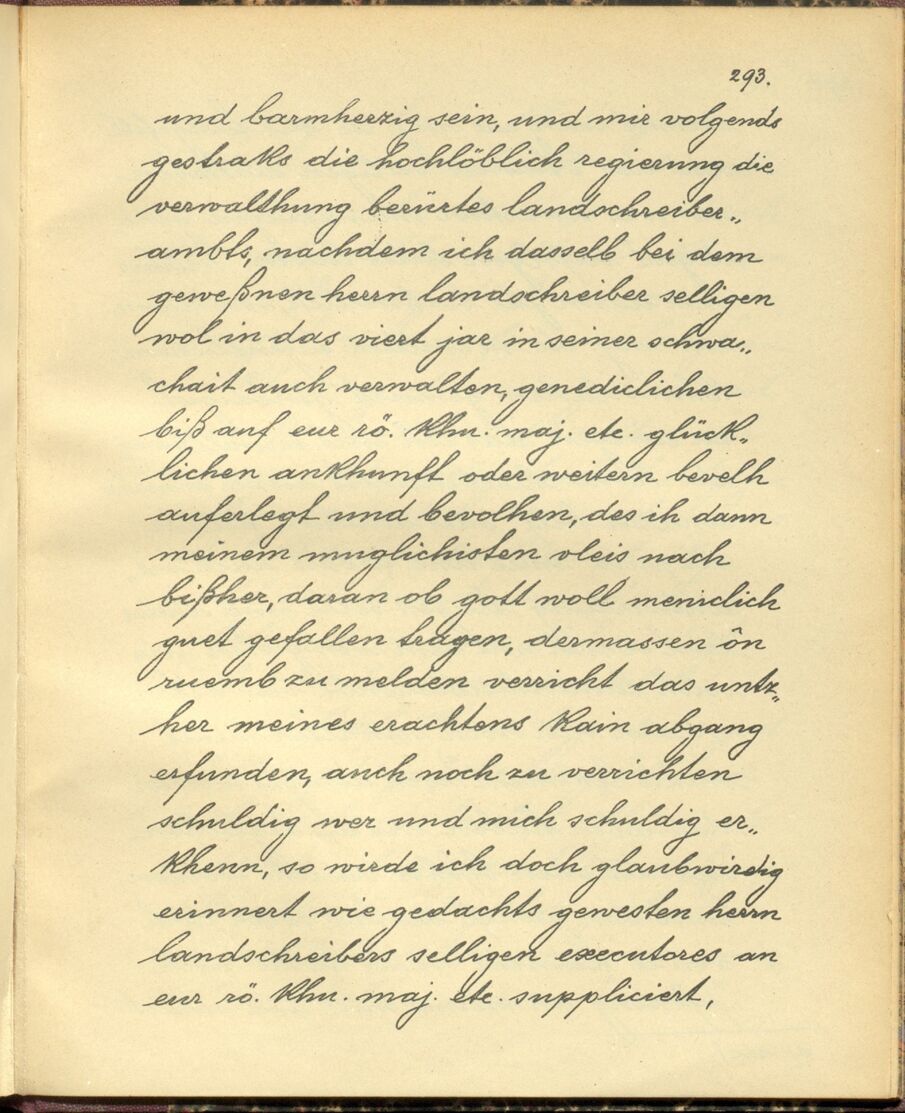 293.
und barmherzig sein, und mir volgends
gestraks die hochlöblich regierung die
verwalthung berürtes landschreiber„
ambts, nachdem ich dasselb bei dem
geweßnen herrn landschreiber selligen
wol in das viert jar in seiner schwa„
chait auch verwalten, genediclichen
biß auf eur rö. khu. maj. etc. glück„
lichen ankhunft oder weitern bevelh
auferlegt und bevolhen, des ih dann
meinem muglichisten vleis nach
bißher, daran ob gott woll meniclich
guet gefallen tragen, dermassen ôn
ruemb zu melden verricht das untz„
her meines erachtens kain abgang
erfunden, auch noch zu verrichten
schuldig wer und mich schuldig er„
khenn, so wirde ich doch glaubwirdig
erinnert wie gedachts gewesten herrn
landschreibers selligen executores an
eur rö. khu. maj. etc. suppliciert,